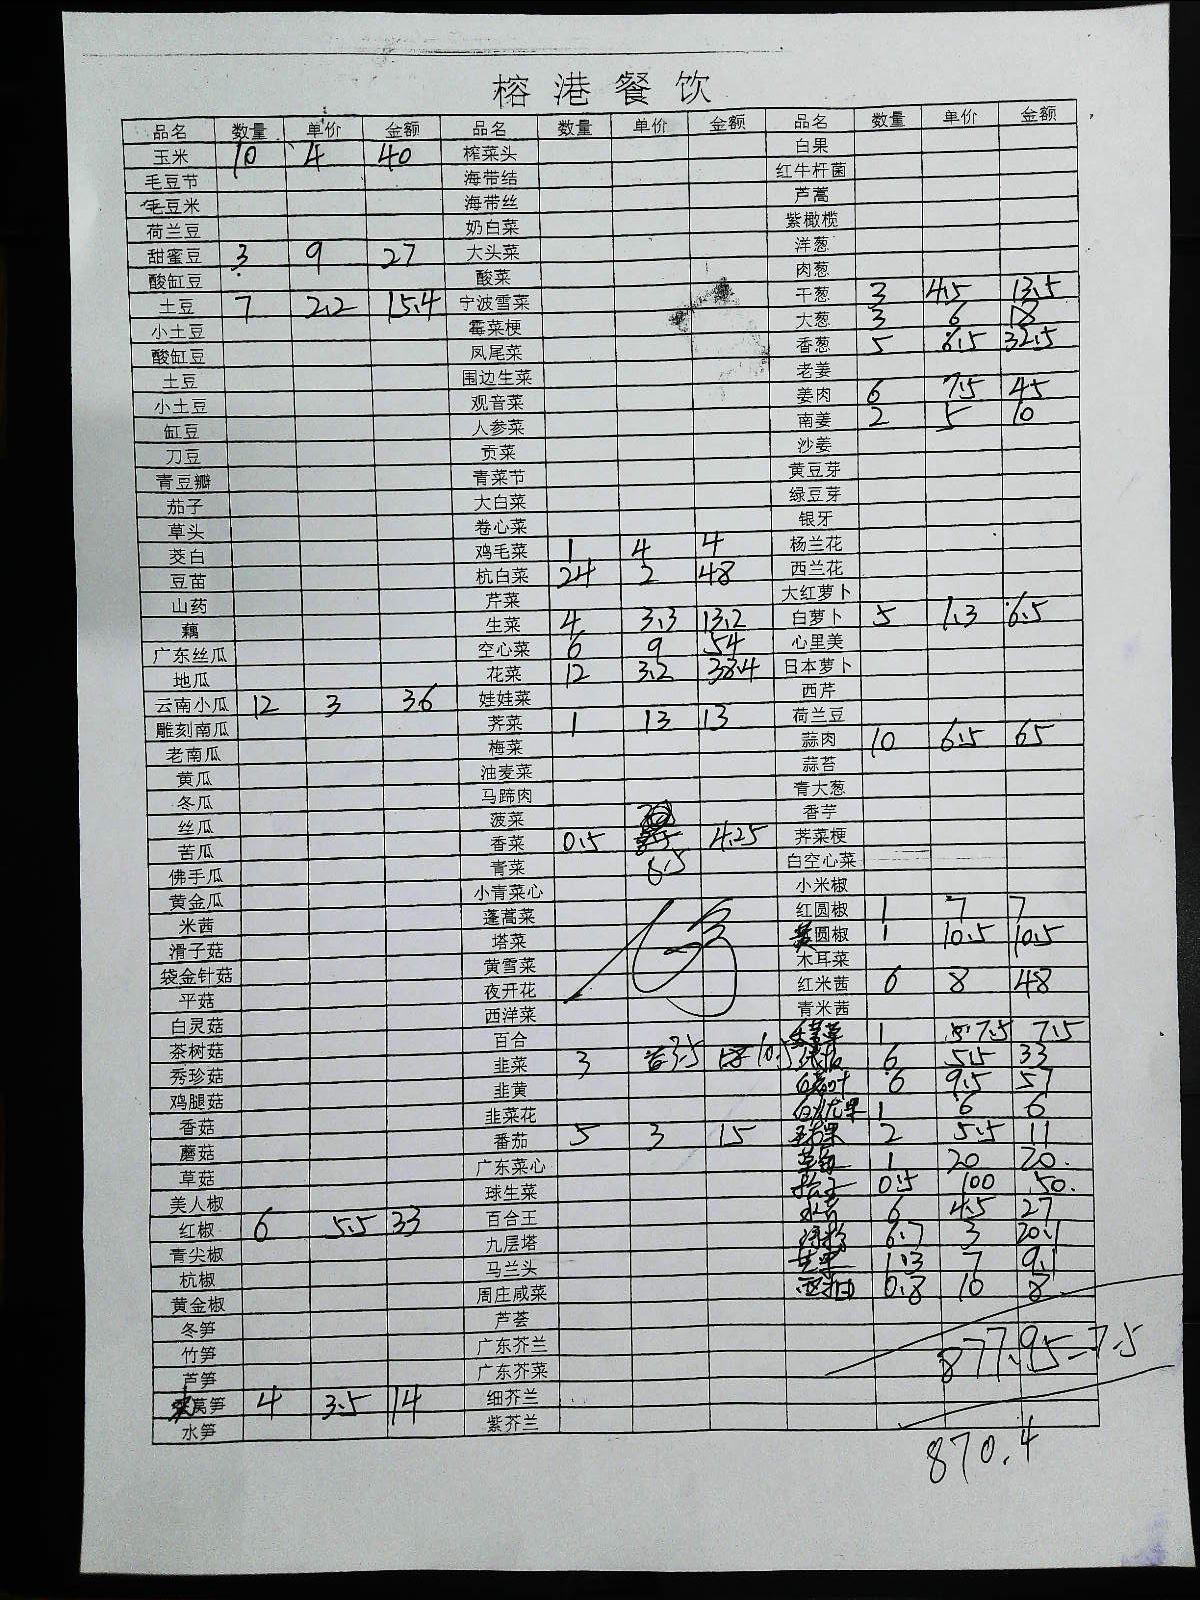 榕港餐饮
品名 数量 单价 金额 品名 数量 单价 金额 品名 数量 单价 金额
玉米 10 4 40 榨菜头 白果
毛豆节 海带结 红牛杆菌
毛豆米 海带丝 芦蒿
荷兰豆 奶白菜 紫橄榄
甜蜜豆 3 9 27 大头菜 洋葱
酸缸豆 酸菜 肉葱
土豆 7 2.2 15.4 宁波雪菜 干葱 3 4.5 13.5
小土豆 霉菜梗 大葱 3 6 18
酸缸豆 凤尾菜 香葱 5 6.5 32.5
土豆 围边生菜 老姜
小土豆 观音菜 姜肉 6 7.5 45
缸豆 人参菜 南姜 2 5 10
刀豆 贡菜 沙姜
青豆瓣 青菜节 黄豆芽
茄子 大白菜 绿豆芽
草头 卷心菜 银牙
茭白 鸡毛菜 1 4 4 杨兰花
豆苗 杭白菜 24 2 48 西兰花
山药 芹菜 大红萝卜
藕 生菜 4 3.3 13.2 白萝卜 5 1.3 6.5
广东丝瓜 空心菜 6 9 54 心里美
地瓜 花菜 12 3.2 38.4 日本萝卜
云南小瓜 12 3 36 娃娃菜 西芹
雕刻南瓜 荠菜 1 13 13 荷兰豆
老南瓜 梅菜 蒜肉 10 6.5 65
黄瓜 油麦菜 蒜苔
冬瓜 马蹄肉 青大葱
丝瓜 菠菜 香芋
苦瓜 香菜 0.5 4.25 荠菜梗
佛手瓜 青菜 8.5 白空心菜
黄金瓜 小青菜心 小米椒
米茜 蓬蒿菜 红圆椒 1 7 7
滑子菇 塔菜 圆椒 1 10.5 10.5
袋金针菇 黄雪菜 木耳菜
平菇 夜开花 红米茜 6 8 48
白灵菇 西洋菜 青米茜
茶树菇 百合 1 7.5 7.5
秀珍菇 韭菜 3 3.5 10.5 6 5.5 33
鸡腿菇 韭黄 6 9.5 57
香菇 韭菜花 1 6 6
蘑菇 番茄 5 3 15 2 5.5 11
草菇 广东菜心 1 20 20.
美人椒 球生菜 0.5 100 50.
红椒 6 5.5 33 百合王 6 4.5 27
青尖椒 九层塔 6.7 3 20.1
杭椒 马兰头 1.3 7 9.1
黄金椒 周庄咸菜 西柚 0.8 10 8
冬笋 芦荟
竹笋 广东芥兰 877.95-7.5
芦笋 广东芥菜
莴笋 4 3.5 14 细芥兰
水笋 紫芥兰
870.4